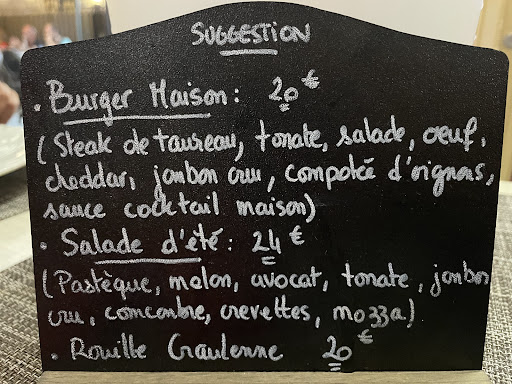 SUGGESTION
• Burger Maison : 20€
(Steak de taureau, tomate, salade, oeuf,
cheddar, jambon cru, compotée d'oignons,
sauce cocktail maison)
• Salade d'été : 24€
(Pastèque, melon, avocat, tomate, jambon
cru, concombre, crevettes, mozza)
• Rouille Graulenne 20€